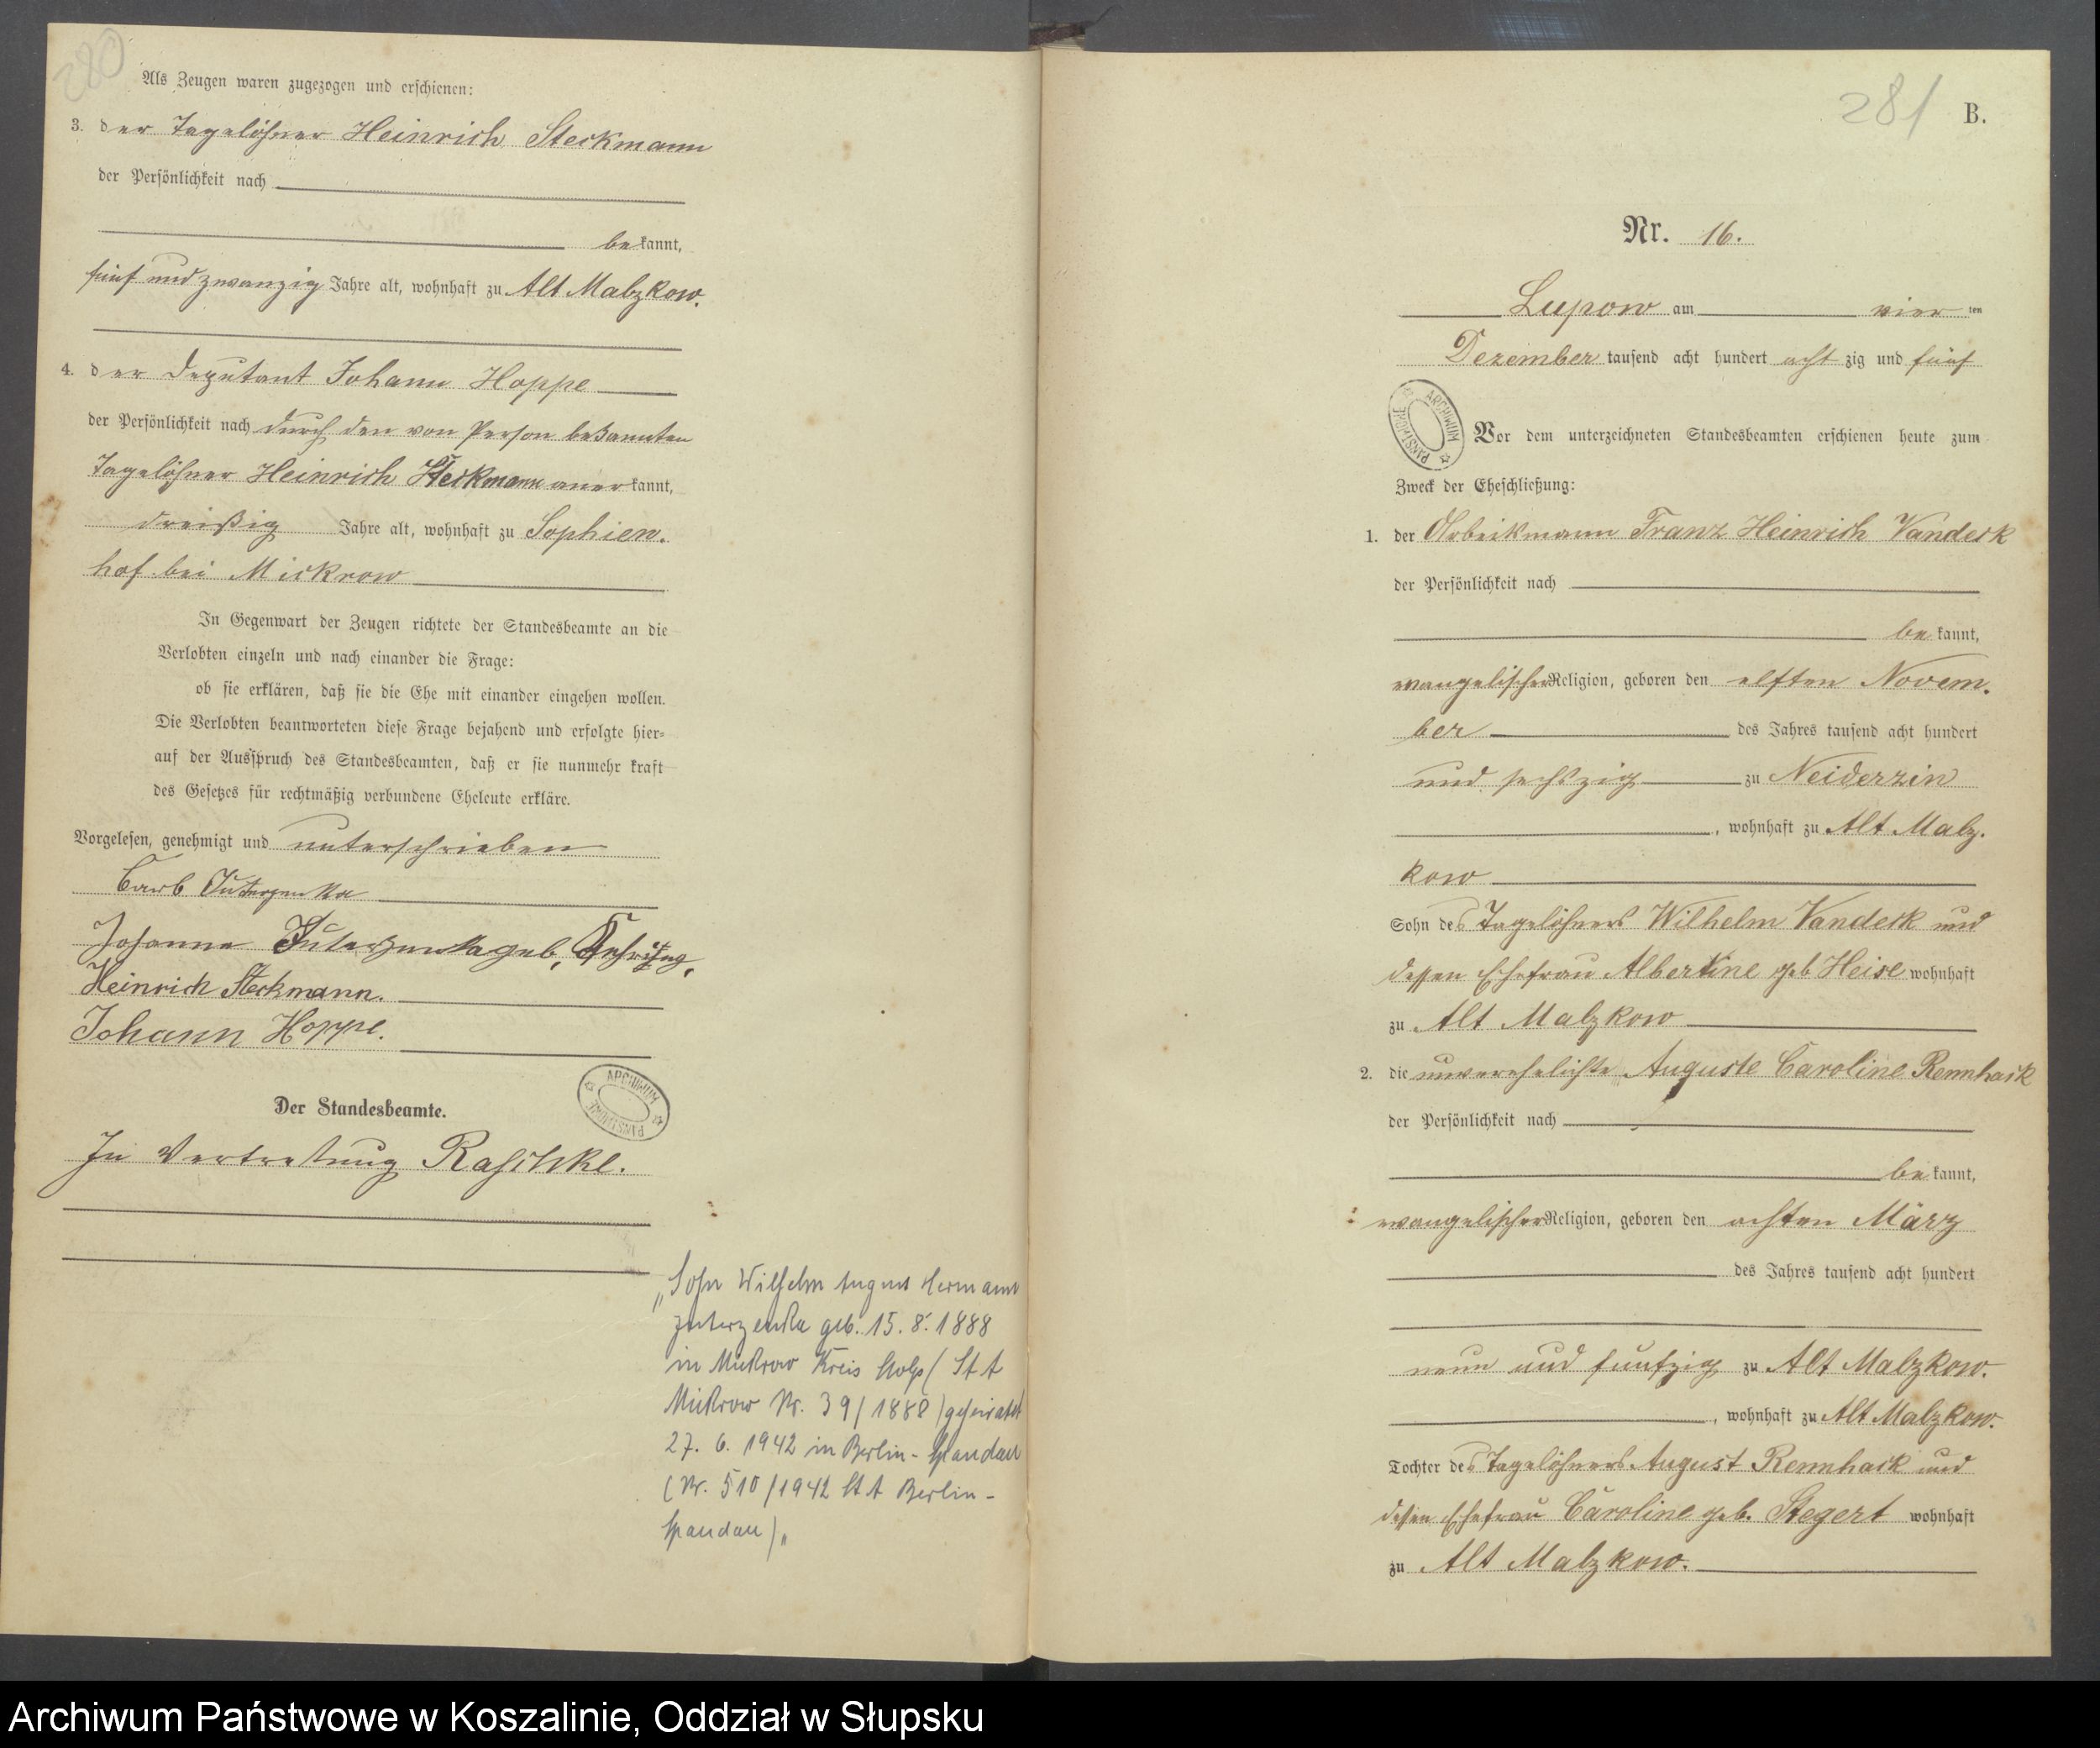 280
Als Zeugen waren zugezogen und erschienen:
3. der Tagelöhner Heinrich Steckmann
der Persönlichkeit nach
bekannt,
fünf und zwanzig Jahre alt, wohnhaft zu Alt Malzkow.
4. der Deputant Johann Hoppe
der Persönlichkeit nach durch den von Person bekannten
Tagelöhner Heinrich Steckmann anerkannt,
dreißig Jahre alt, wohnhaft zu Sophien-
hof bei Mickrow
In Gegenwart der Zeugen richtete der Standesbeamte an die
Verlobten einzeln und nach einander die Frage:
ob sie erklären, daß sie die Ehe mit einander eingehen wollen.
Die Verlobten beantworteten diese Frage bejahend und erfolgte hier-
auf der Ausspruch des Standesbeamten, daß er sie nunmehr kraft
des Gesetzes für rechtmäßig verbundene Eheleute erkläre.
Vorgelesen, genehmigt und unterschrieben
Johanna geb.
Heinrich Steckmann.
Johann Hoppe.
ARCHIWUM PAŃSTWOWE
Der Standesbeamte.
In Vertretung Raschke.
„Sohn Wilhelm August Hermann
Zuterzenka geb. 15.8.1888
in Mickrow Kreis Stolp (St A
Mickrow Nr. 39/1888) geheiratet
27. 6. 1942 in Berlin-Spandau
(Nr. 510/1942 St A Berlin-
Spandau)„
281 B.
Nr. 16.
Lupow am vierten
Dezember tausend acht hundert achtzig und fünf
ARCHIWUM PAŃSTWOWE
Vor dem unterzeichneten Standesbeamten erschienen heute zum
Zweck der Eheschließung:
1. der Arbeitsmann Franz Heinrich Vandeck
der Persönlichkeit nach
bekannt,
evangelischer Religion, geboren den elften Novem-
ber des Jahres tausend acht hundert
und sechszig zu Neiderzin
, wohnhaft zu Alt Malz-
kow
Sohn des Tagelöhners Wilhelm Vandeck und
dessen Ehefrau Albertine geb. Heise wohnhaft
zu Alt Malzkow
2. die unverehelichte Auguste Caroline Rennhack
der Persönlichkeit nach
bekannt,
evangelischer Religion, geboren den achten März
des Jahres tausend acht hundert
neun und funfzig zu Alt Malzkow.
, wohnhaft zu Alt Malzkow.
Tochter des Tagelöhners August Rennhack und
dessen Ehefrau Caroline geb. Stegert wohnhaft
zu Alt Malzkow.
Archiwum Państwowe w Koszalinie, Oddział w Słupsku